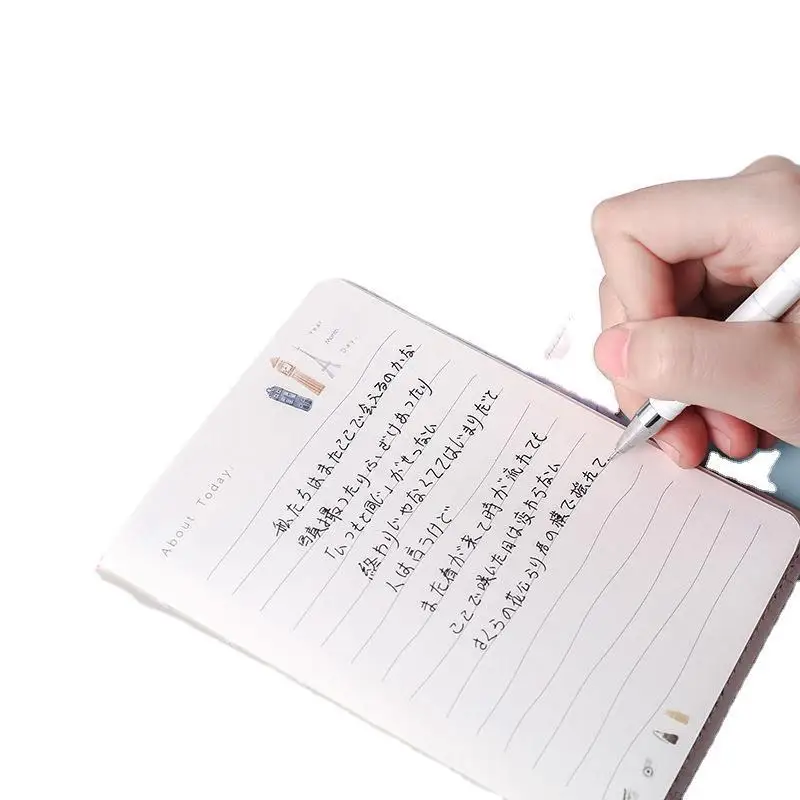 Year
Month
Day
About Today
私たちはまたここで会えるのかな
写真撮ったりふざけあったり
「いつもと同じ」がせつない
終わりじゃなくてはじまりだと
人は言うけど
また春が来て時が流れても
ここで咲いた日は変わらない
さくらの花ひらり君の横で揺れて